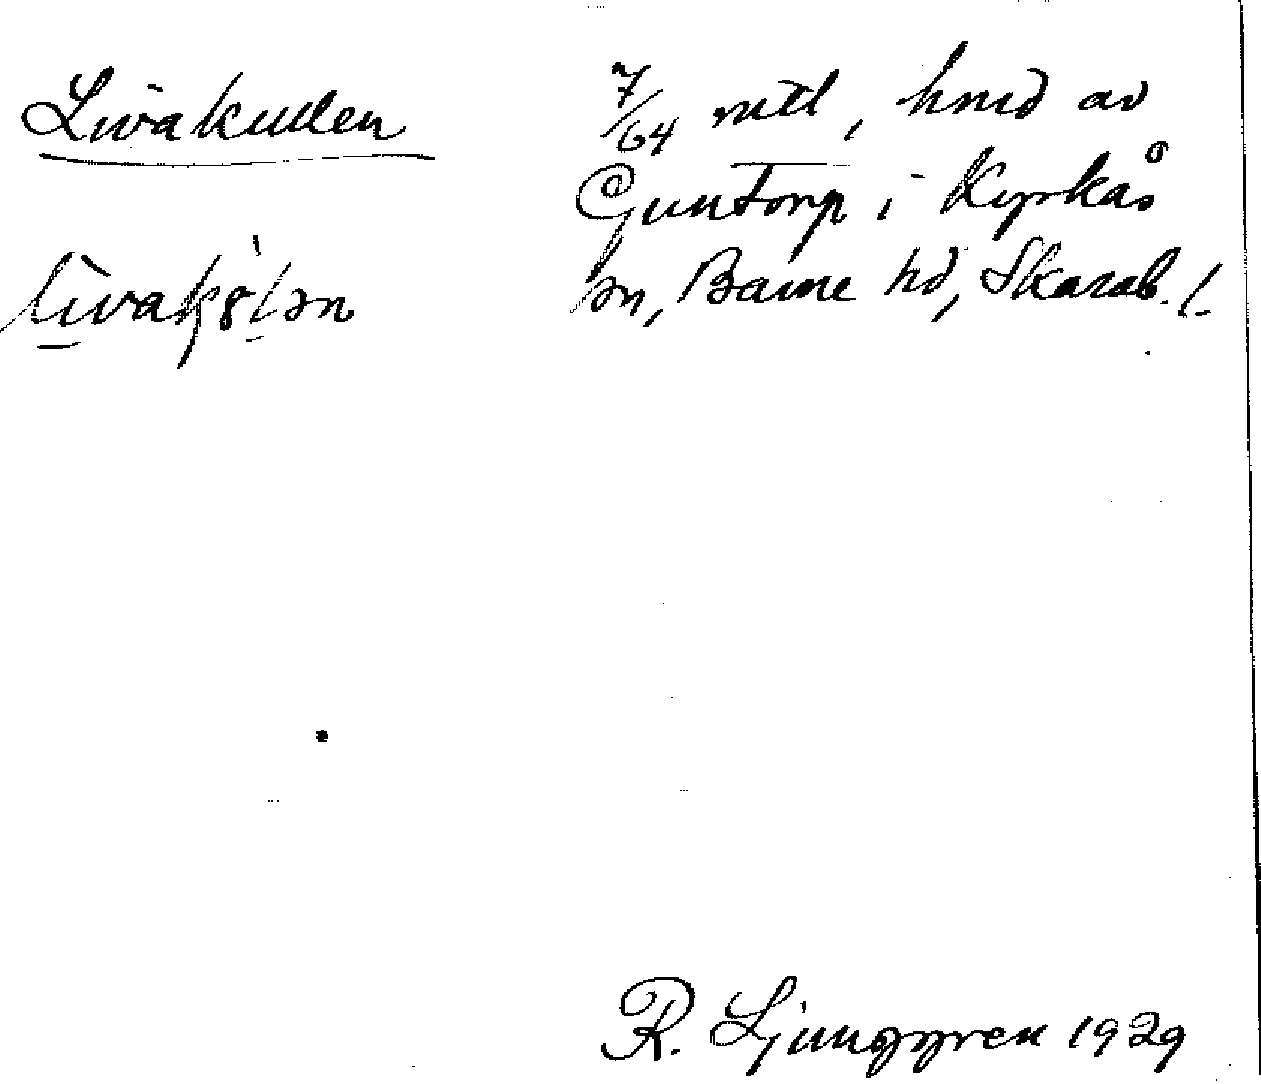 Livakullen
7/64 mtl, hmd av
Guntorp i Kyrkås
sn, Barne hd, Skarab. l.
R. Ljunggren 1929